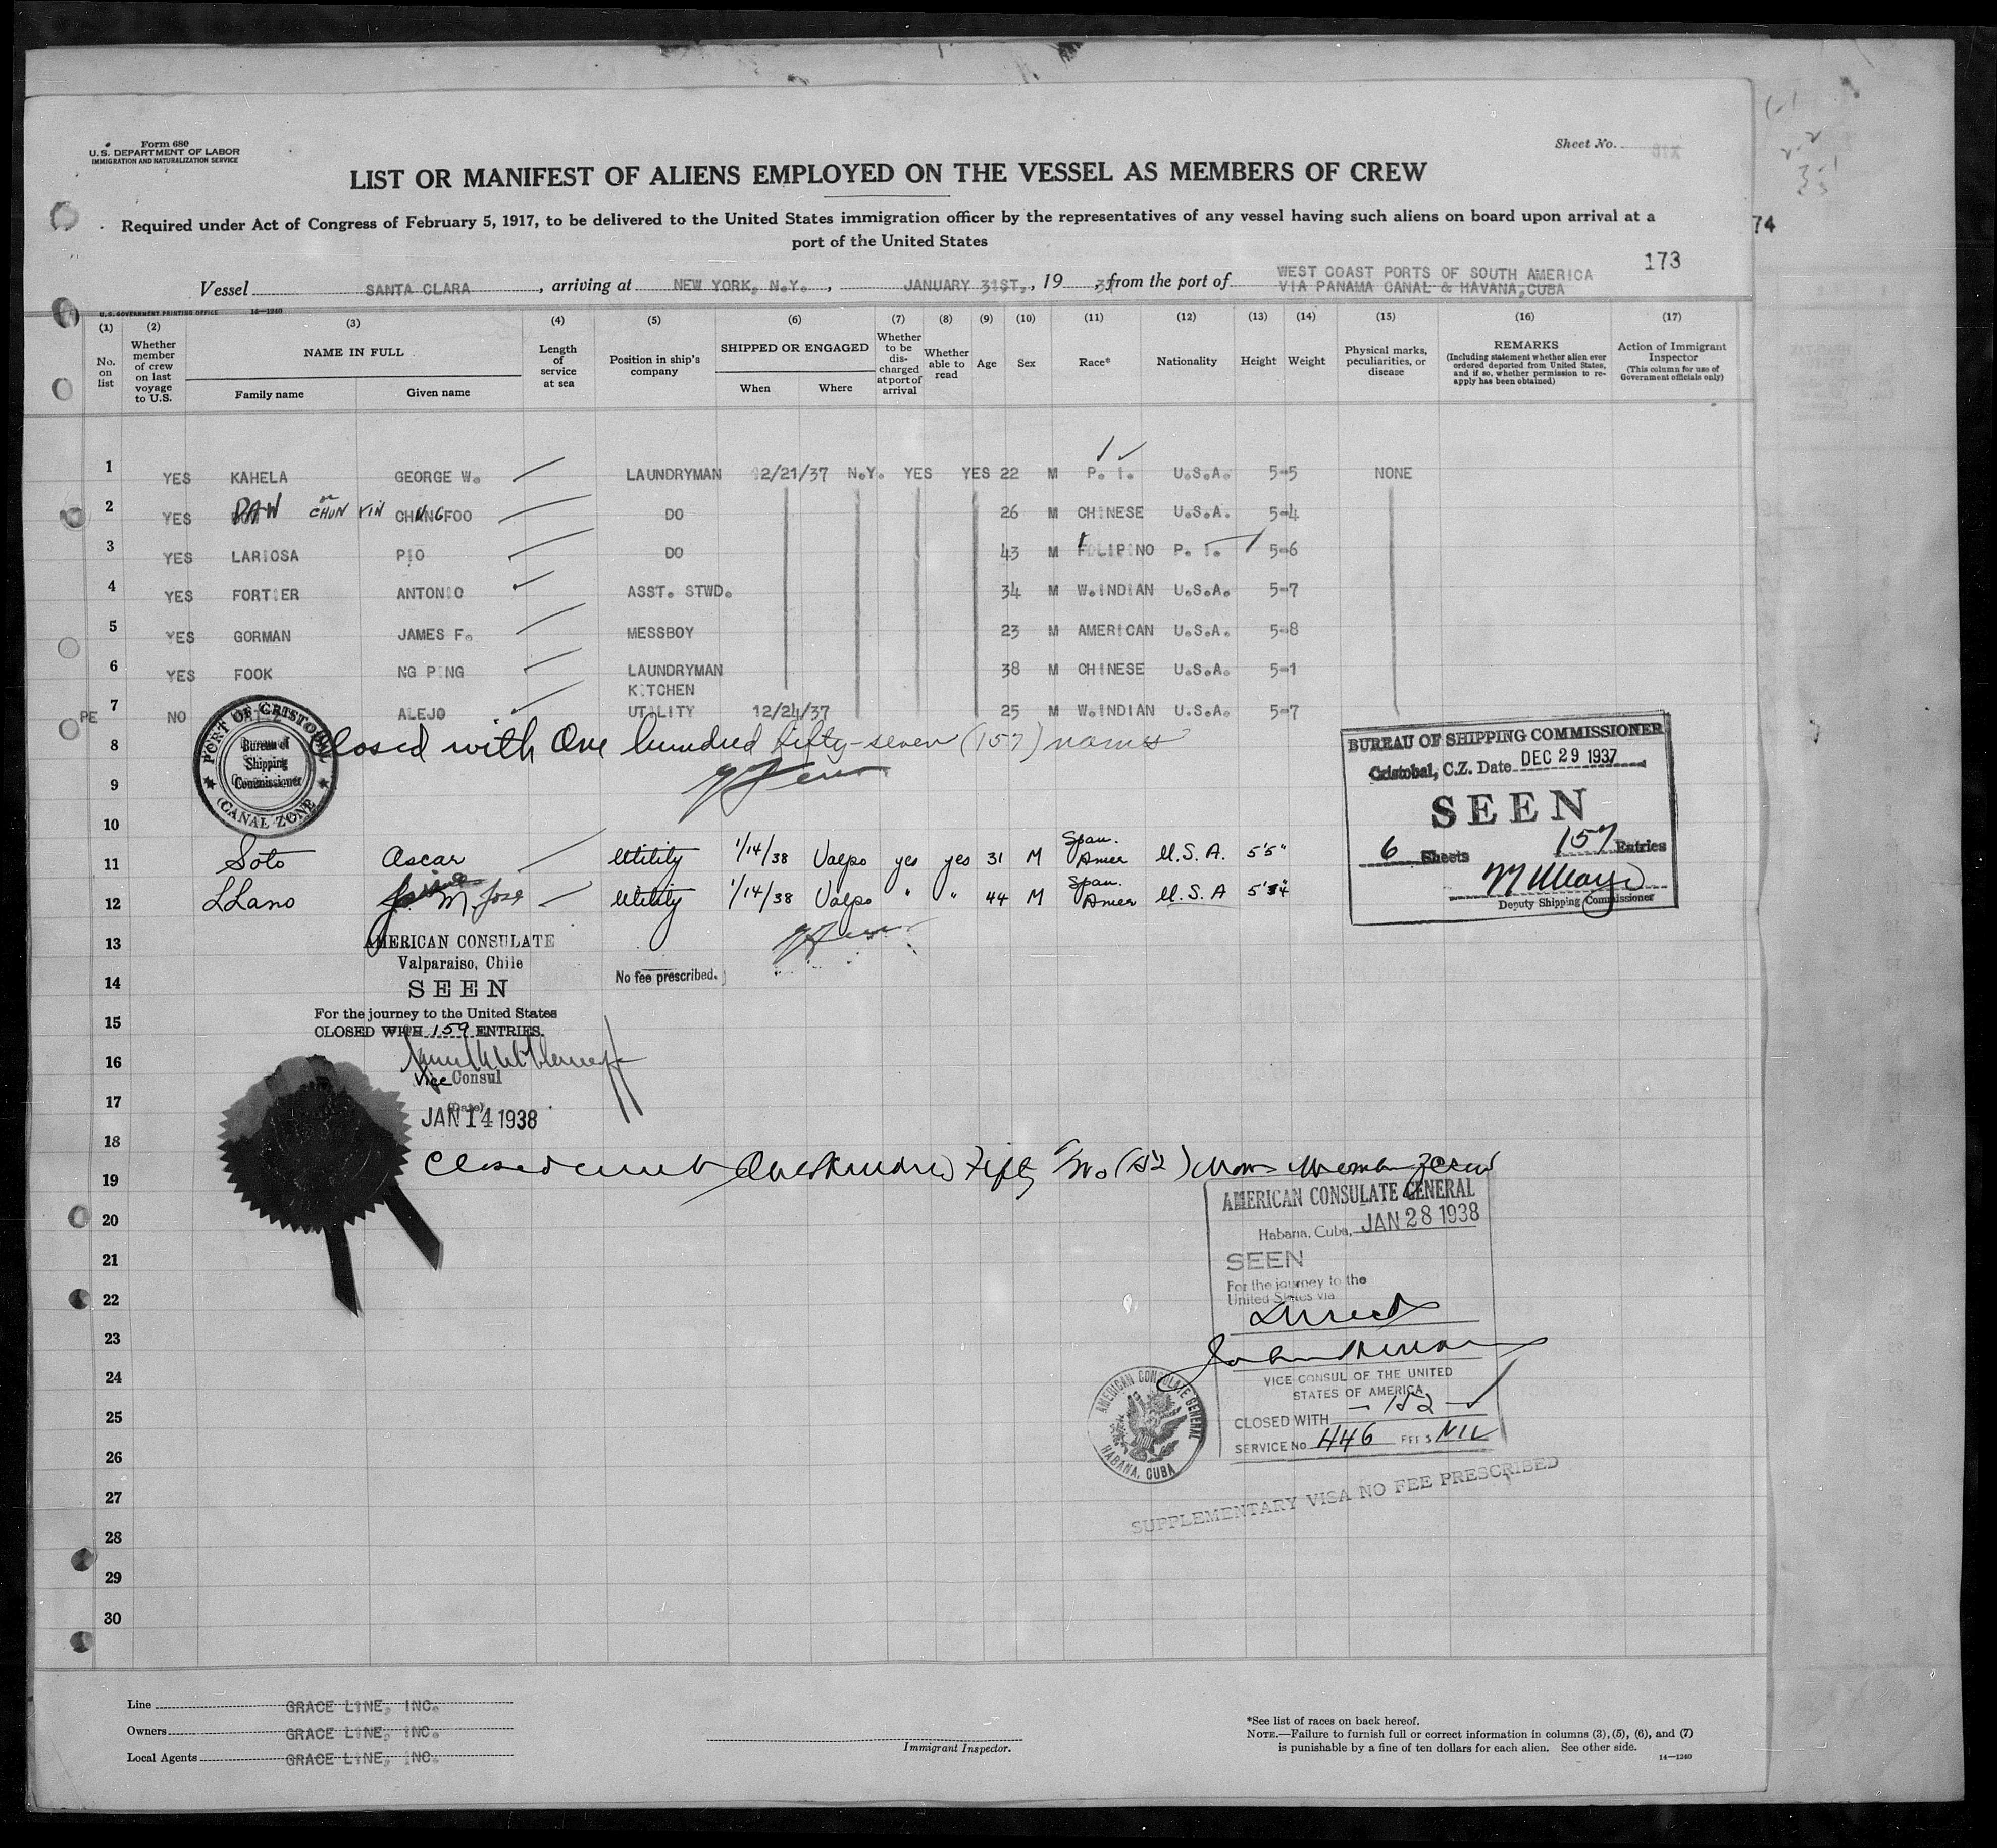 Form 680
U.S. DEPARTMENT OF LABOR
IMMIGRATION AND NATURALIZATION SERVICE
Sheet No. SIX
LIST OR MANIFEST OF ALIENS EMPLOYED ON THE VESSEL AS MEMBERS OF CREW
Required under Act of Congress of February 5, 1917, to be delivered to the United States immigration officer by the representatives of any vessel having such aliens on board upon arrival at a
port of the United States
74
173
Vessel SANTA CLARA, arriving at NEW YORK, N.Y., JANUARY 31ST, 19 , from the port of WEST COAST PORTS OF SOUTH AMERICA
VIA PANAMA CANAL & HAVANA, CUBA
U.S. GOVERNMENT PRINTING OFFICE 14—1240
(1) (2) (3) (4) (5) (6) (7) (8) (9) (10) (11) (12) (13) (14) (15) (16) (17)
No. on list
Whether member of crew on last voyage to U.S.
NAME IN FULL
Family name
Given name
Length of service at sea
Position in ship's company
SHIPPED OR ENGAGED
When
Where
Whether to be discharged at port of arrival
Whether able to read
Age
Sex
Race*
Nationality
Height
Weight
Physical marks, peculiarities, or disease
REMARKS
(Including statement whether alien ever ordered deported from United States, and if so, whether permission to reapply has been obtained)
Action of Immigrant Inspector
(This column for use of Government officials only)
1 YES KAHELA GEORGE W. LAUNDRYMAN 12/21/37 N.Y. YES YES 22 M P. I. U.S.A. 5-5 NONE
2 YES DAW or CHUN YIN CHUNG FOO DO 26 M CHINESE U.S.A. 5-4
3 YES LARIOSA PIO DO 43 M FILIPINO P. I. 5-6
4 YES FORTIER ANTONIO ASST. STWD. 34 M W.INDIAN U.S.A. 5-7
5 YES GORMAN JAMES F. MESSBOY 23 M AMERICAN U.S.A. 5-8
6 YES FOOK NG PING LAUNDRYMAN 38 M CHINESE U.S.A. 5-1
KITCHEN
PE 7 NO ALEJO UTILITY 12/24/37 25 M W.INDIAN U.S.A. 5-7
PORT OF CRISTOBAL
Bureau of
Shipping
Commissioner
CANAL ZONE
8 Closed with One hundred fifty-seven (157) names
9
10
BUREAU OF SHIPPING COMMISSIONER
Cristobal, C.Z. Date DEC 29 1937
SEEN
6 Sheets 157 Entries
Deputy Shipping Commissioner
11 Soto Oscar Utility 1/14/38 Valpo yes yes 31 M Span. Amer U.S.A. 5'5"
12 LLano M Jose Utility 1/14/38 Valpo " " 44 M Span. Amer U.S.A 5'4
13
AMERICAN CONSULATE
Valparaiso, Chile
14
SEEN
No fee prescribed.
15
For the journey to the United States
CLOSED WITH 159 ENTRIES.
16
Vice Consul
17
(Date)
JAN 14 1938
18
19 Closed with One Hundred Fifty Two (152) Crew
AMERICAN CONSULATE GENERAL
20
Habana, Cuba, JAN 28 1938
21
SEEN
For the journey to the
22
United States via
Direct
23
24
VICE CONSUL OF THE UNITED
STATES OF AMERICA
25
CLOSED WITH — 152 —
SERVICE No 446 FEES NIL
AMERICAN CONSULATE GENERAL
HABANA, CUBA
26
27
SUPPLEMENTARY VISA NO FEE PRESCRIBED
28
29
30
Line GRACE LINE, INC.
Owners GRACE LINE, INC.
Local Agents GRACE LINE, INC.
Immigrant Inspector.
*See list of races on back hereof.
NOTE.—Failure to furnish full or correct information in columns (3), (5), (6), and (7)
is punishable by a fine of ten dollars for each alien. See other side.
14—1240